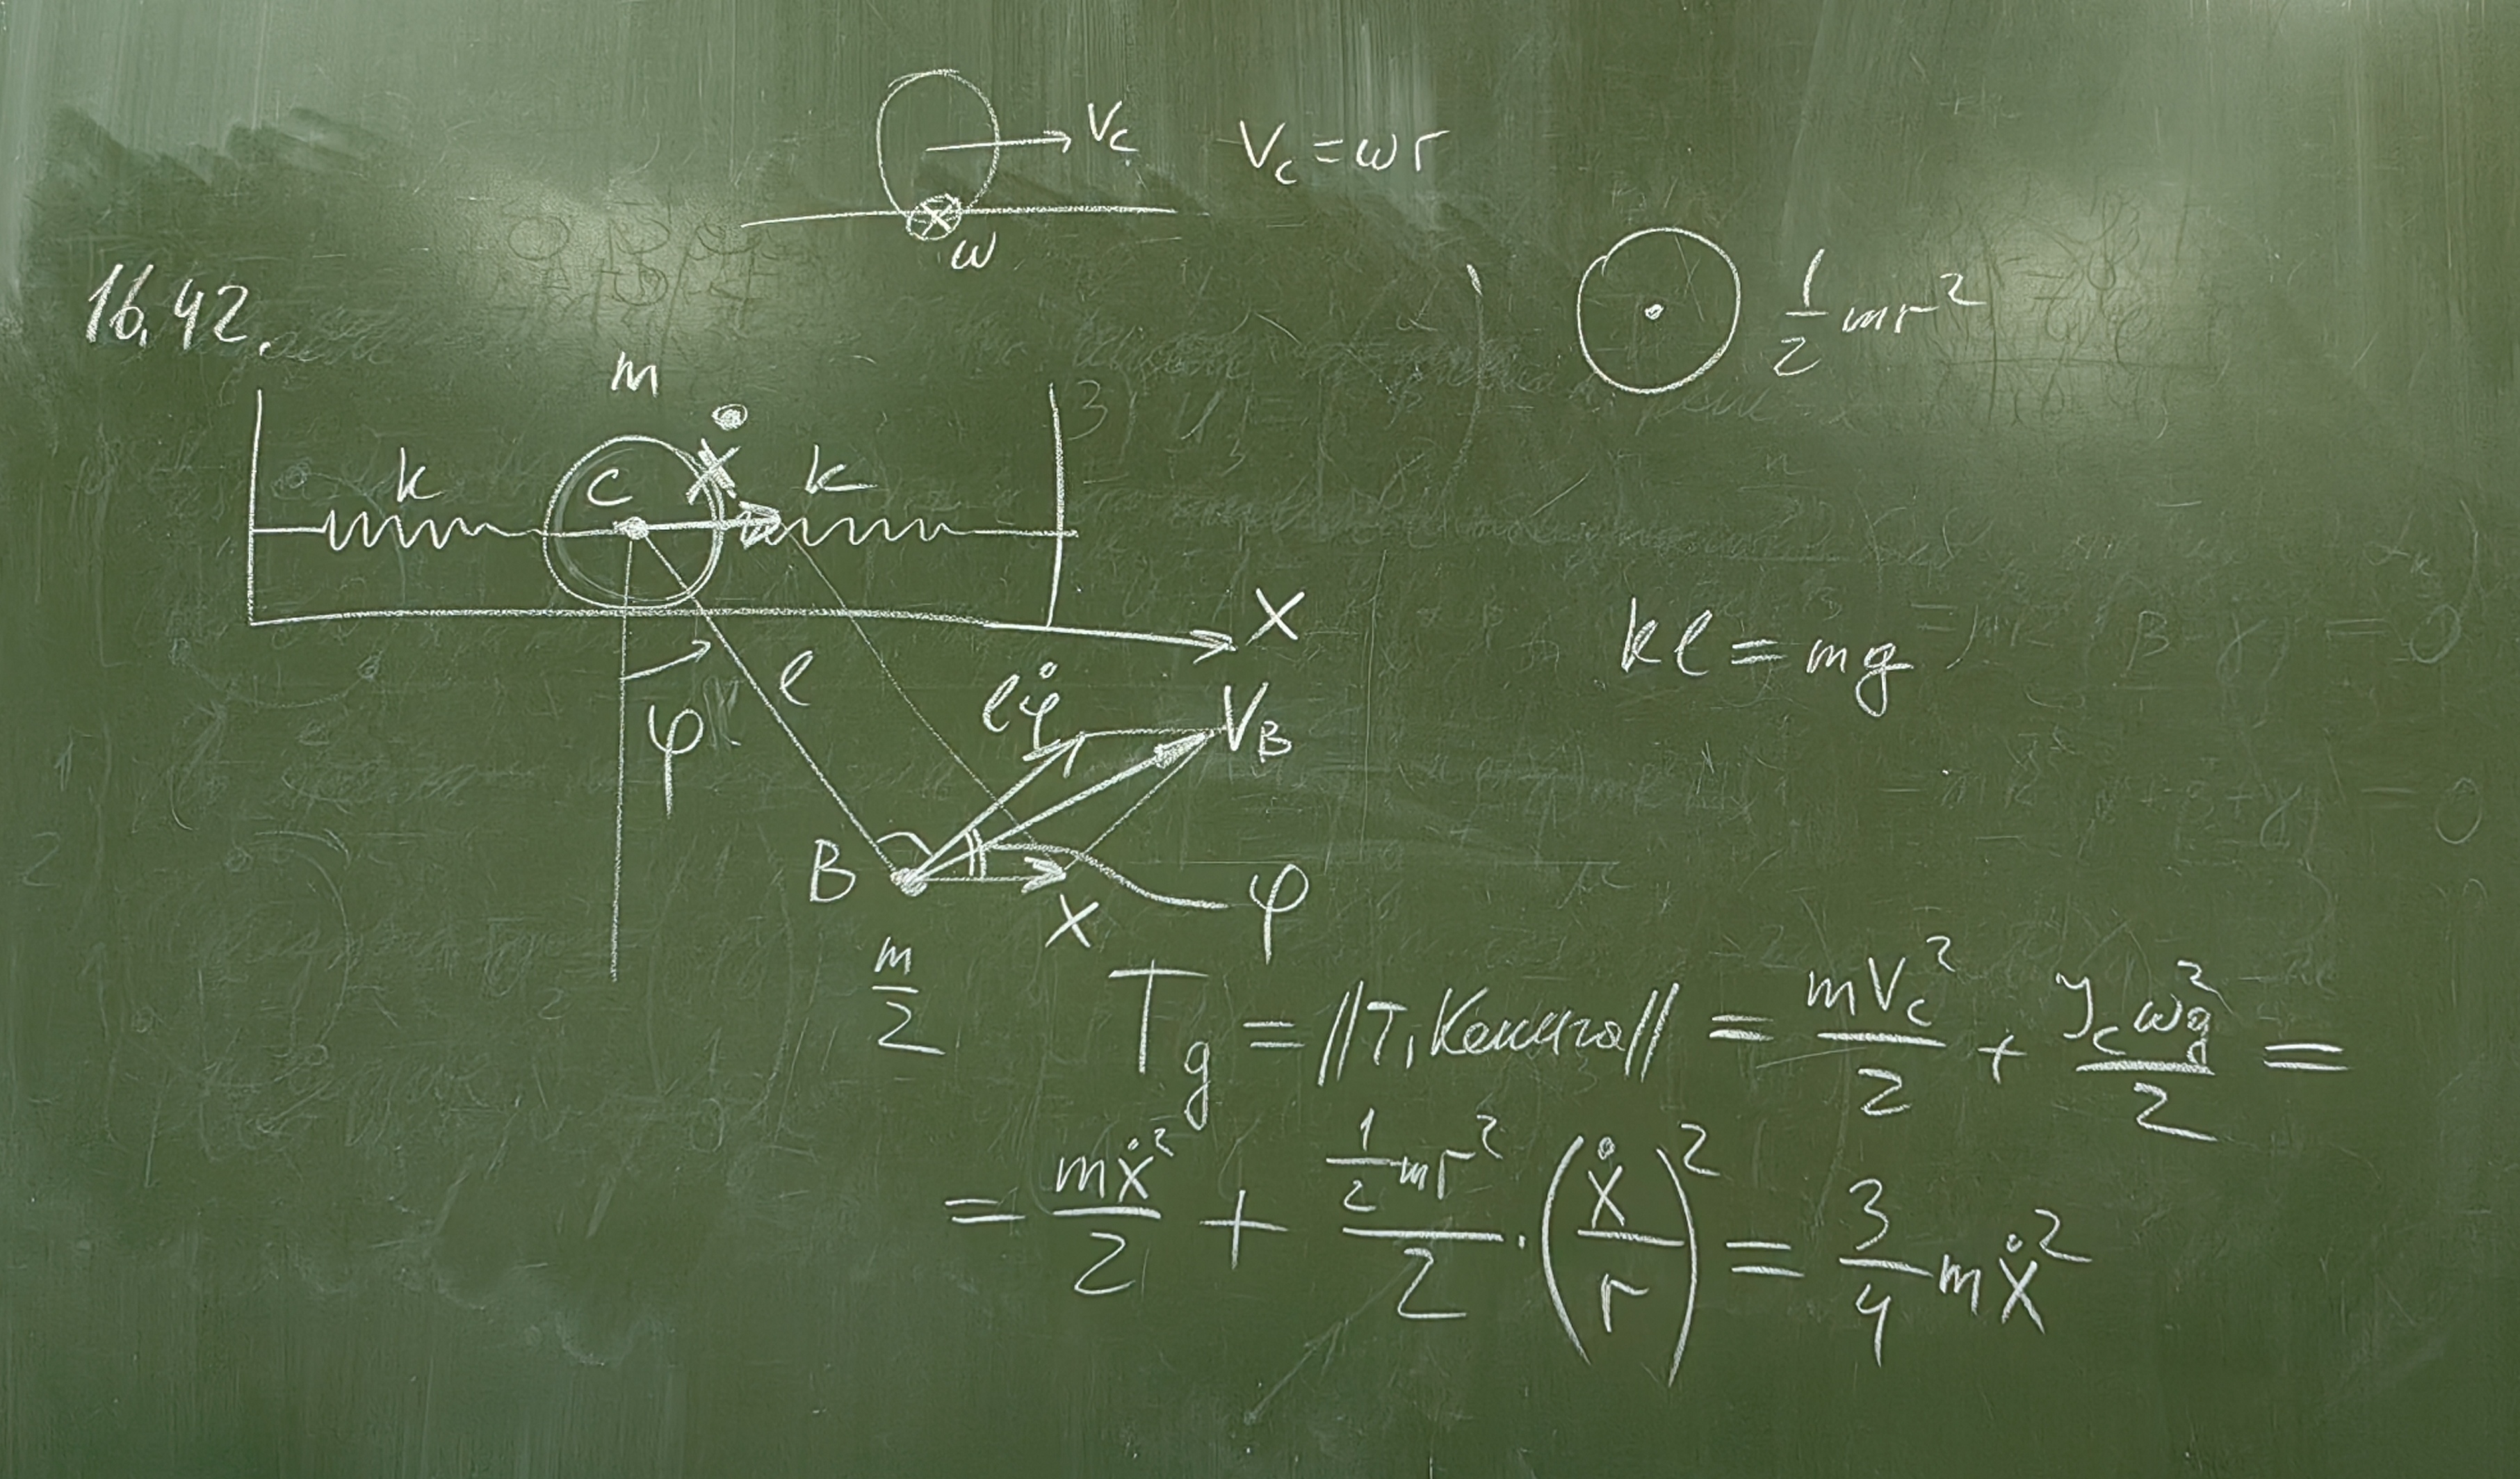 V_c V_c = ωr
ω
16.42.
1/2 mr²
m
ẋ
k C k
X
kl = mg
l
lφ̇ V_B
φ
B
ẋ φ
m/2
T_g = ||Т, Кенига|| = mV_c²/2 + J_c ω_g²/2 =
= mẋ²/2 + (1/2 mr²)/2 · (ẋ/r)² = 3/4 mẋ²